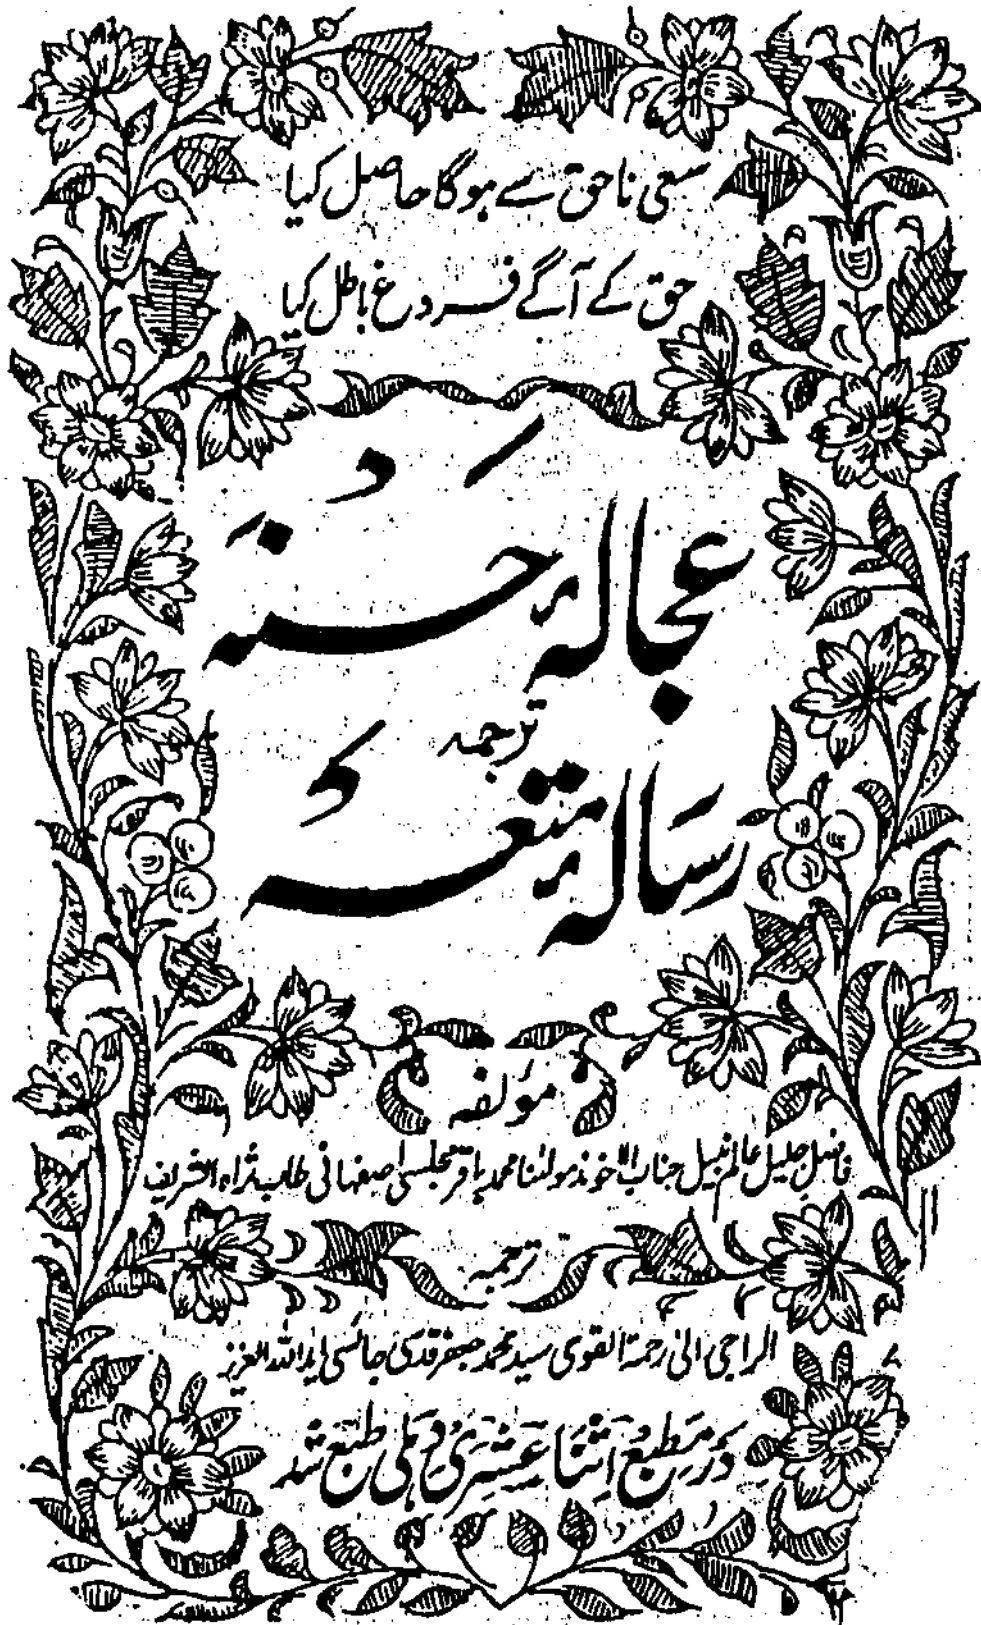 سعی ناحق سے ہوگا حاصل کیا
حق کے آگے فروغ باطل کیا
عجالۂ حسنہ
ترجمہ
رسالۂ متعہ
مؤلفہ
فاضل جلیل عالم نبیل جناب الاخوند مولٰنا محمد باقر مجلسی اصفہانی طاب ثراہ الشریف
ترجمہ
الراجی الیٰ رحمۃ القوی سید محمد جعفر قدسی جائسی ایدہ اللہ العزیز
در مطبع اثنا عشری دہلی طبع شد